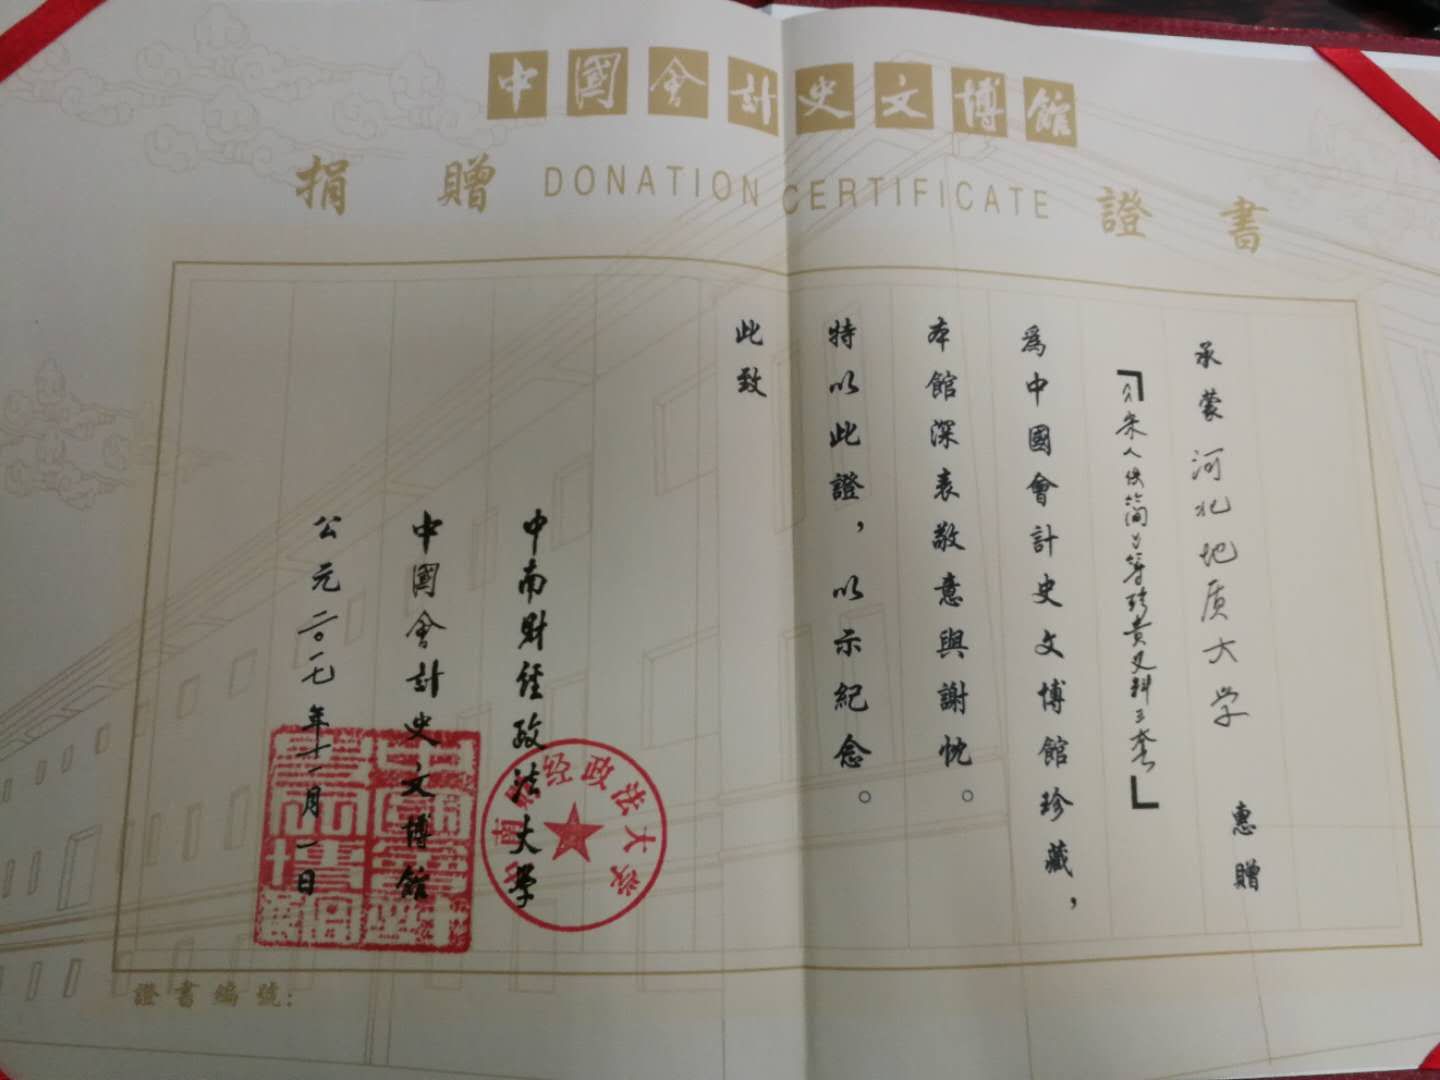 中國會計史文博館
捐贈 DONATION CERTIFICATE 證書
承蒙河北地质大学 惠贈
宋人佚简等珍贵史料三套
為中國會計史文博館珍藏，
本館深表敬意與謝忱。
特以此證，以示紀念。
此致
中南財經政法大學
中國會計史文博館
公元二〇一七年十一月一日
南 经政法大学
證書編號: